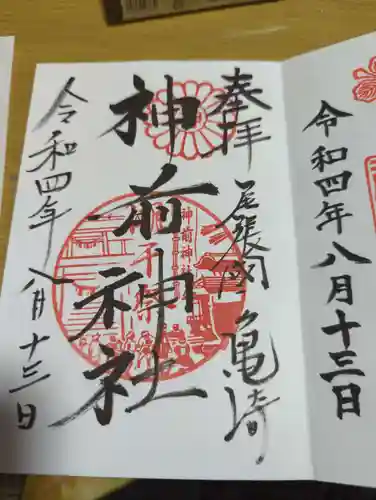 令和四年八月十三日
奉拝
尾張国亀崎
神前神社
神前神社
潮干祭
令和四年八月十三日